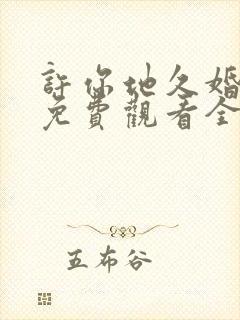 許你地久婚
免費觀看全
五布谷